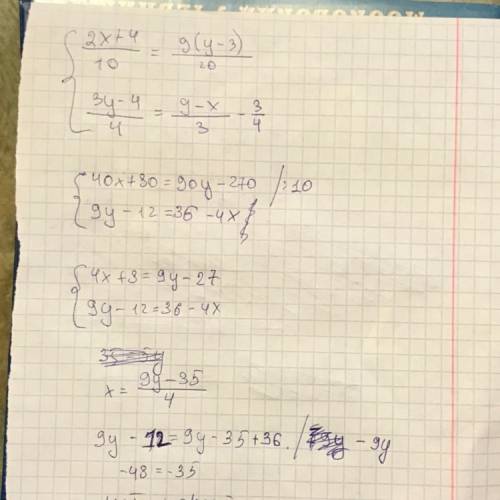 { (2x+4)/10 = 9(y-3)/20
{ (3y-4)/4 = (9-x)/3 - 3/4
{ 40x+80=90y-270 /:10
{ 9y-12=36-4x
{ 4x+8=9y-27
{ 9y-12=36-4x
x= (9y-35)/4
9y-12=9y-35+36. / -9y
-48=-35